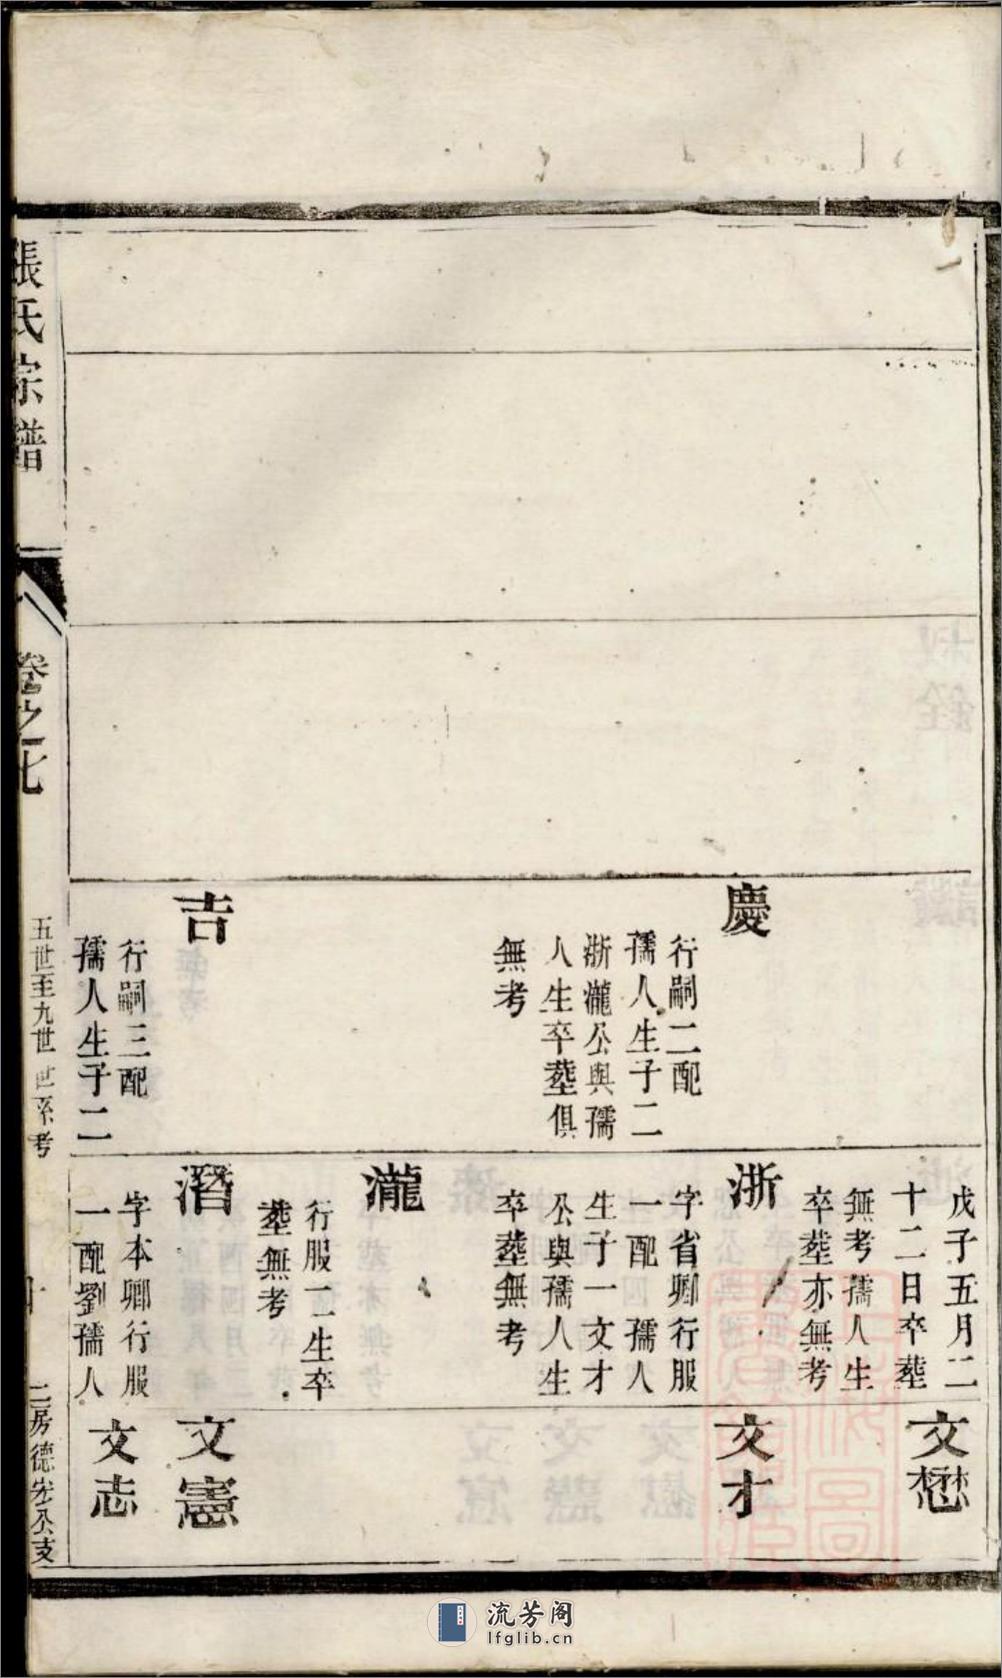 慶
行嗣二配
孺人生子二
浙瀧公與孺
人生卒塟俱
無考
吉
行嗣三配
孺人生子二
戊子五月二
十二日卒塟
無考孺人生
卒塟亦無考
浙
字省卿行服
一配　孺人
生子一文才
公與孺人生
卒塟無考
瀧
行服二生卒
塟無考
潛
字本卿行服
一配劉孺人
文懋
文才
文憲
文志
張氏宗譜
卷之七
五世至九世世系考
十
二房德宏公支
流芳阁
lfglib.cn